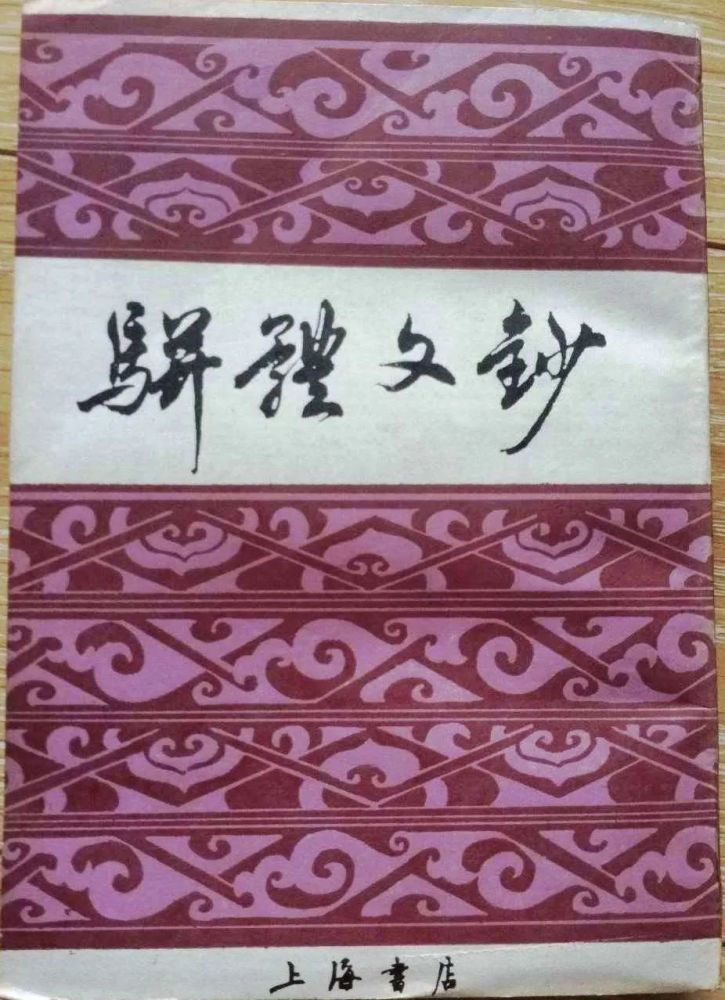 駢體文鈔
上海書店